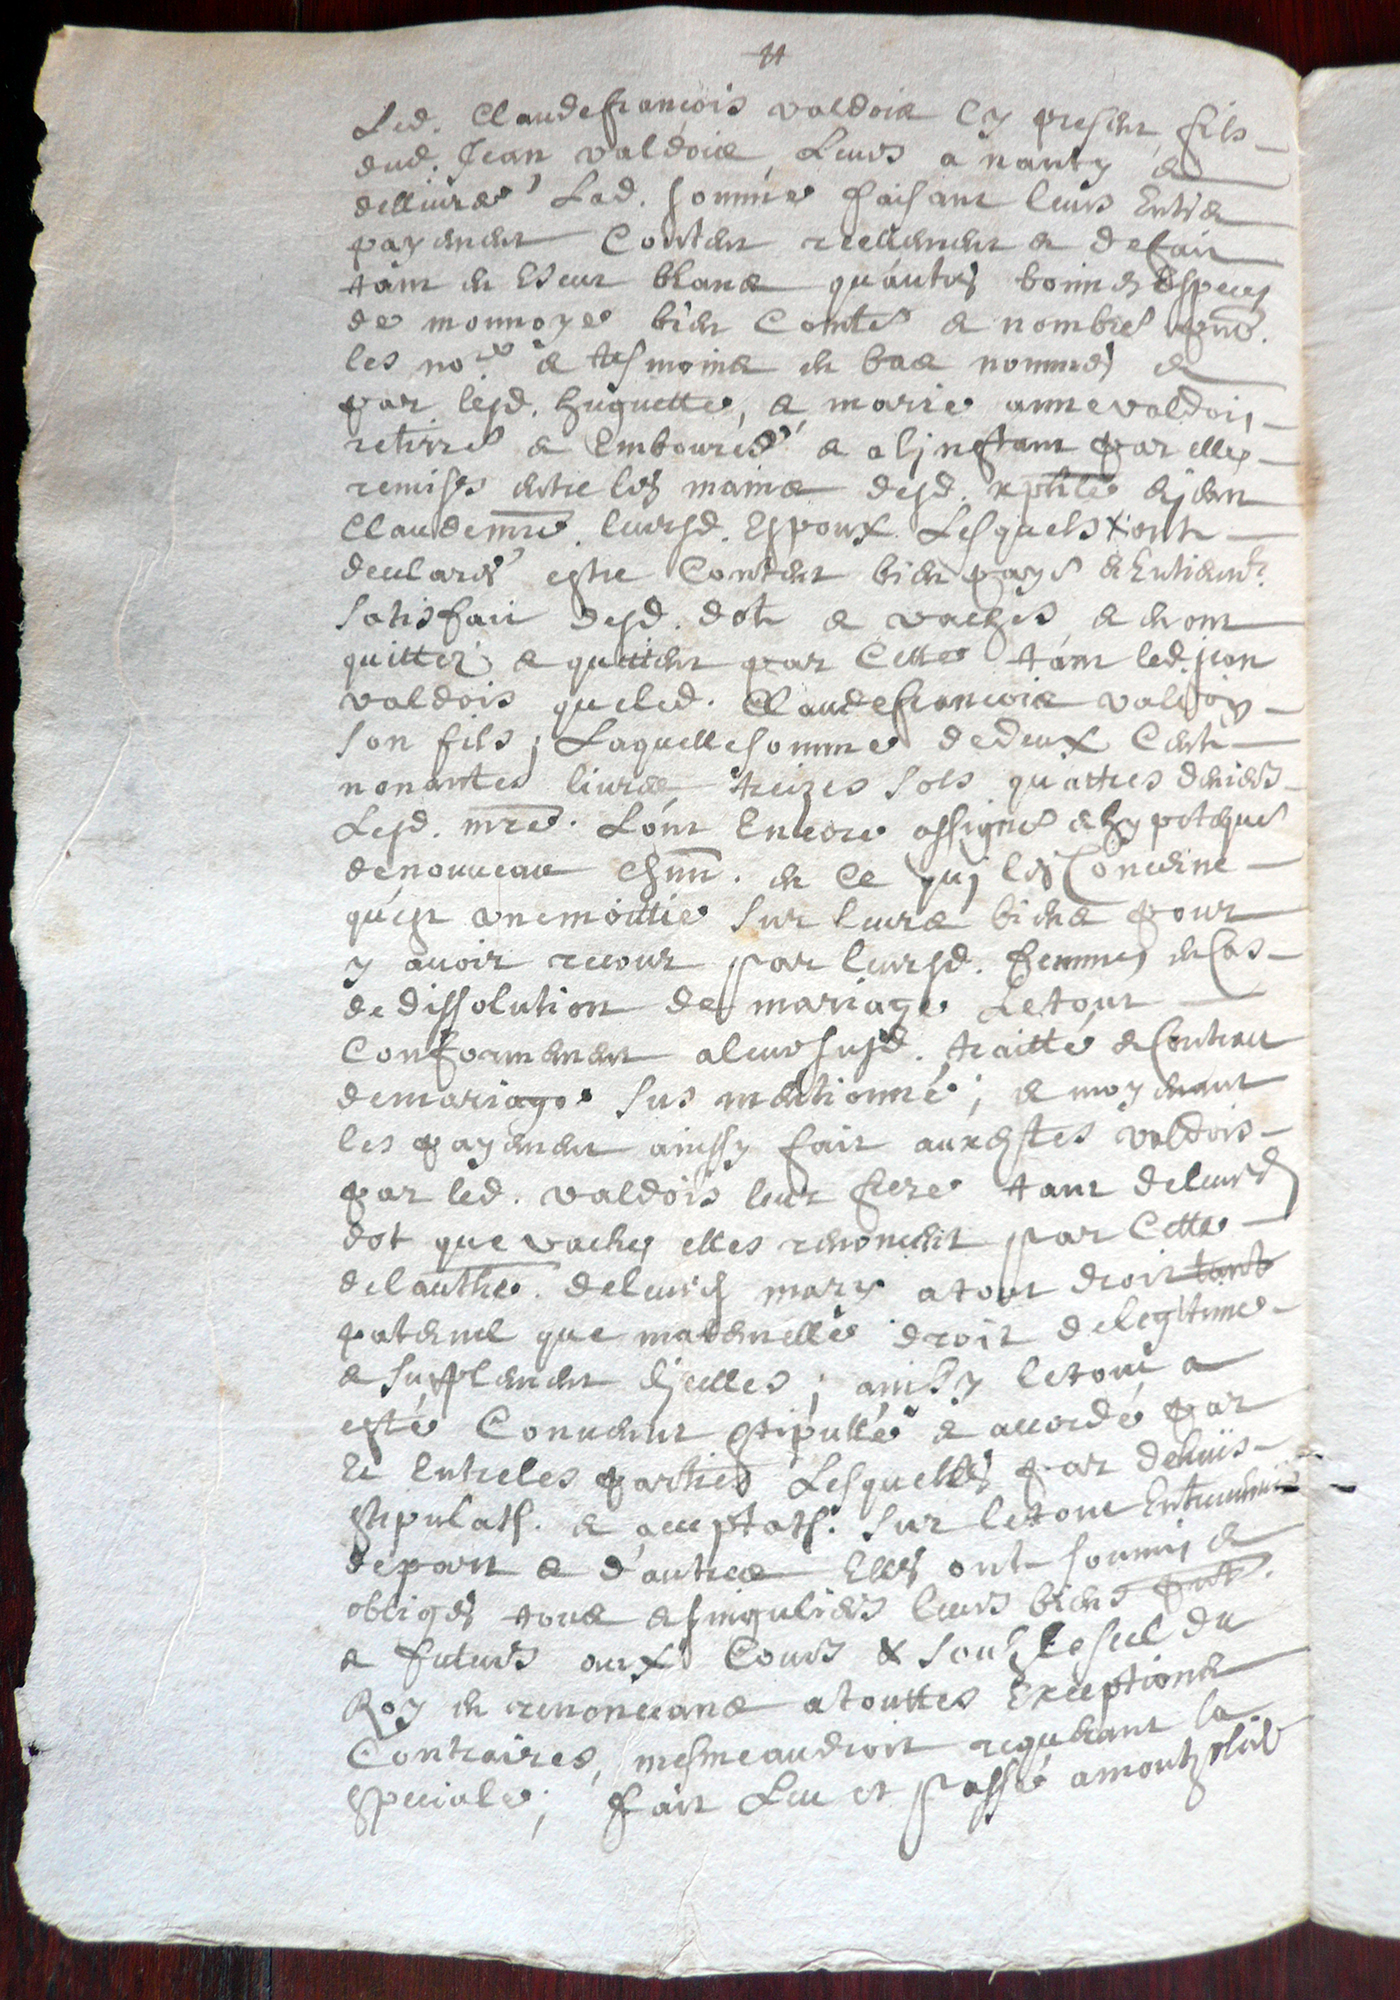 Led. Claudefrançois valdois Cy present fils
dud. Jean valdois Leurs a nanty et
delliuré Lad. somme faisant leurs Entier
payement Contant reellement et defait
tant en Escut blanc qu'autres bonnes Especes
de monnoye bien Comté et nombré pnt.
les no.res et tesmoins en bas nommés et
par lesd. huguette, et marie anne valdois
retirré et Embourcé et a linstant par elles
remises entre les mains desd. et Jean
Claude mre. leursd. Espoux Lesquels ont
declarés estre Content bien payé et Entierem.t
satisfait desd. dot et vaches, et en ont
quittéz et quittent par Cette tant led. jean
valdois que led. Claudefrançois valdois
son fils; Laquelle somme dedeux Cent
nonantes liures treizes sols quattres deniers
Lesd. mre. L'ont Encore assigné et hypotequé
denouueau chnn. en Ce quj les Concerne
qu'est vnemoittie sur leurs biens pour
y auoir recour par leursd. femmes en Cas
dedissolution de mariage Le tout
Conformement a leur susd. traitté et Contract
demariage sus mentionné; et moyenant
les payement ainssy fait auxdittes valdois
par led. valdois leur frere tant deleursd
dot que vaches elles renoncent par Cette
delauthe. deleursd mary a tout droit tant
paternel que maternelle droit delegitime
et supplement d'jcelles; ainsy letout a
esté Conuenut stipullé et accordé par
Et Entre les parties Lesquelles par dehuës
stipulat. et acceptat. sur letout Entreuenuës
depart et d'autres Elles ont soumis et
obligés tous et singuliers leurs biens pnt.
et futurs aux Cours et soub le scel du
Roy en renonceans a touttes Exceptions
Contraires, mesme au droit requerant la
speciale; fait Leu et passé a